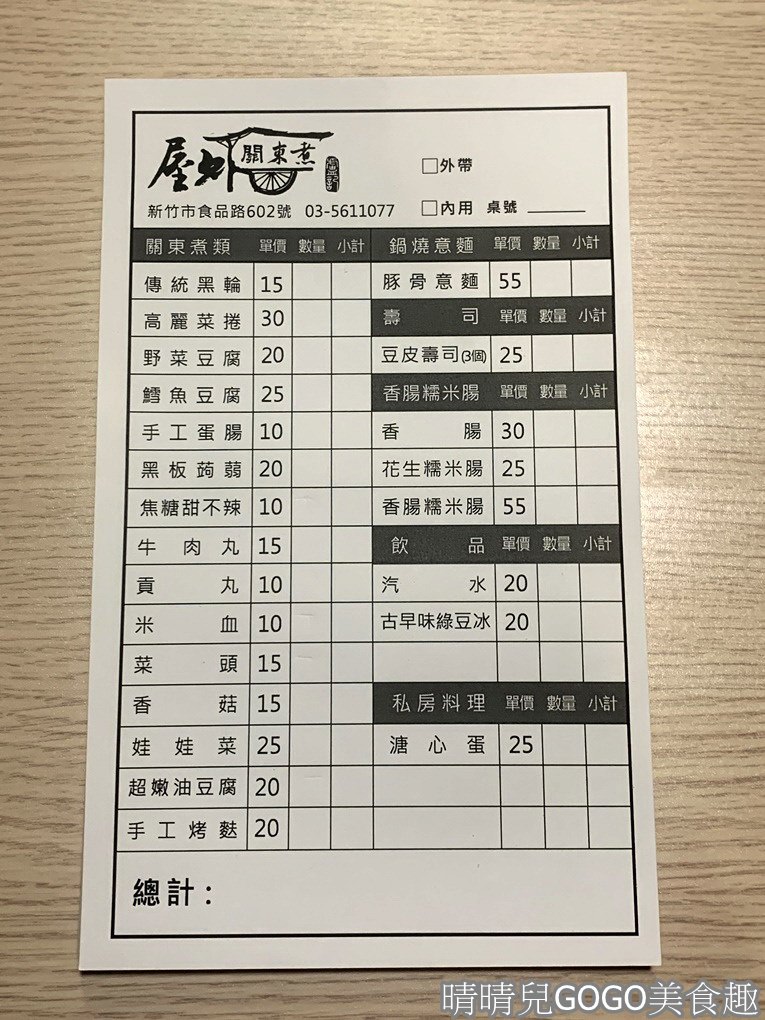 屋外 關東煮
□外帶
新竹市食品路602號 03-5611077
□內用 桌號
關東煮類 單價 數量 小計
傳統黑輪 15
高麗菜捲 30
野菜豆腐 20
鱈魚豆腐 25
手工蛋腸 10
黑板蒟蒻 20
焦糖甜不辣 10
牛肉丸 15
貢丸 10
米血 10
菜頭 15
香菇 15
娃娃菜 25
超嫩油豆腐 20
手工烤麩 20
鍋燒意麵 單價 數量 小計
豚骨意麵 55
壽司 單價 數量 小計
豆皮壽司(3個) 25
香腸糯米腸 單價 數量 小計
香腸 30
花生糯米腸 25
香腸糯米腸 55
飲品 單價 數量 小計
汽水 20
古早味綠豆冰 20
私房料理 單價 數量 小計
溏心蛋 25
總計：
晴晴兒GOGO美食趣